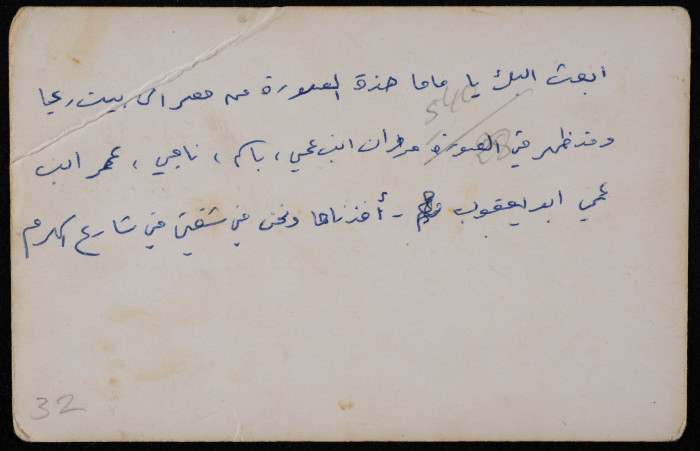 ابعث اليك يا ماما هذة الصورة من مصر الى بيت ريما
وقد ظهر في الصورة مروان ابن عمي، باسم، ناجي، عمر ابن
عمي ابو يعقوب - أخذناها ونحن في شقتي في شارع الهرم
546
88
32